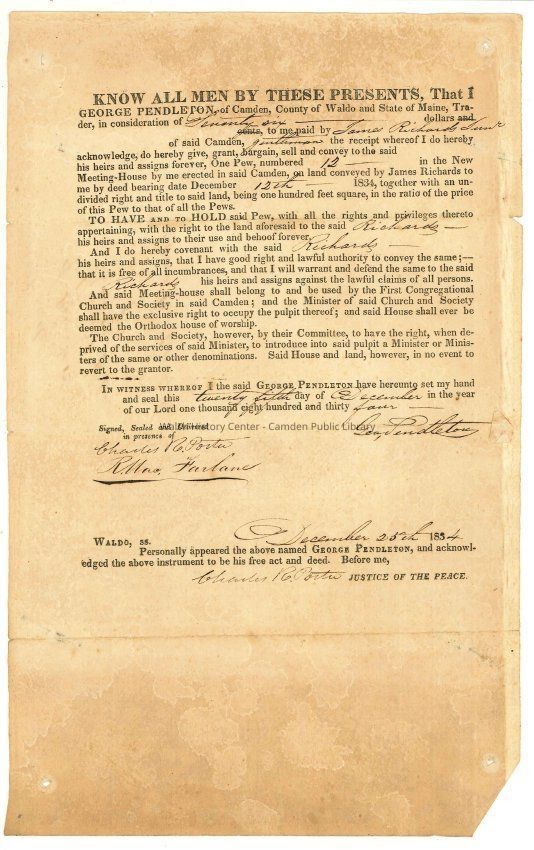 KNOW ALL MEN BY THESE PRESENTS, That I
GEORGE PENDLETON, of Camden, County of Waldo and State of Maine, Tra-
der, in consideration of Seventy six dollars and
cents, to me paid by James Richards Junr
of said Camden, gentleman the receipt whereof I do hereby
acknowledge, do hereby give, grant, bargain, sell and convey to the said
his heirs and assigns forever, One Pew, numbered 12 in the New
Meeting-House by me erected in said Camden, on land conveyed by James Richards to
me by deed bearing date December 12th 1834, together with an un-
divided right and title to said land, being one hundred feet square, in the ratio of the price
of this Pew to that of all the Pews.
TO HAVE AND TO HOLD said Pew, with all the rights and privileges thereto
appertaining, with the right to the land aforesaid to the said Richards
his heirs and assigns to their use and behoof forever.
And I do hereby covenant with the said Richards
his heirs and assigns, that I have good right and lawful authority to convey the same;—
that it is free of all incumbrances, and that I will warrant and defend the same to the said
Richards his heirs and assigns against the lawful claims of all persons.
And said Meeting-house shall belong to and be used by the First Congregational
Church and Society in said Camden; and the Minister of said Church and Society
shall have the exclusive right to occupy the pulpit thereof; and said House shall ever be
deemed the Orthodox house of worship.
The Church and Society, however, by their Committee, to have the right, when de-
prived of the services of said Minister, to introduce into said pulpit a Minister or Minis-
ters of the same or other denominations. Said House and land, however, in no event to
revert to the grantor.
IN WITNESS WHEREOF I the said GEORGE PENDLETON have hereunto set my hand
and seal this twenty fifth day of December in the year
of our Lord one thousand eight hundred and thirty four
Signed, Sealed and Delivered
in presence of
History Center - Camden Public Library
Geo Pendleton
Charles R. Porter
R. Mac Farlane
December 25th 1834
WALDO, ss.
Personally appeared the above named GEORGE PENDLETON, and acknowl-
edged the above instrument to be his free act and deed. Before me,
Charles R. Porter JUSTICE OF THE PEACE.